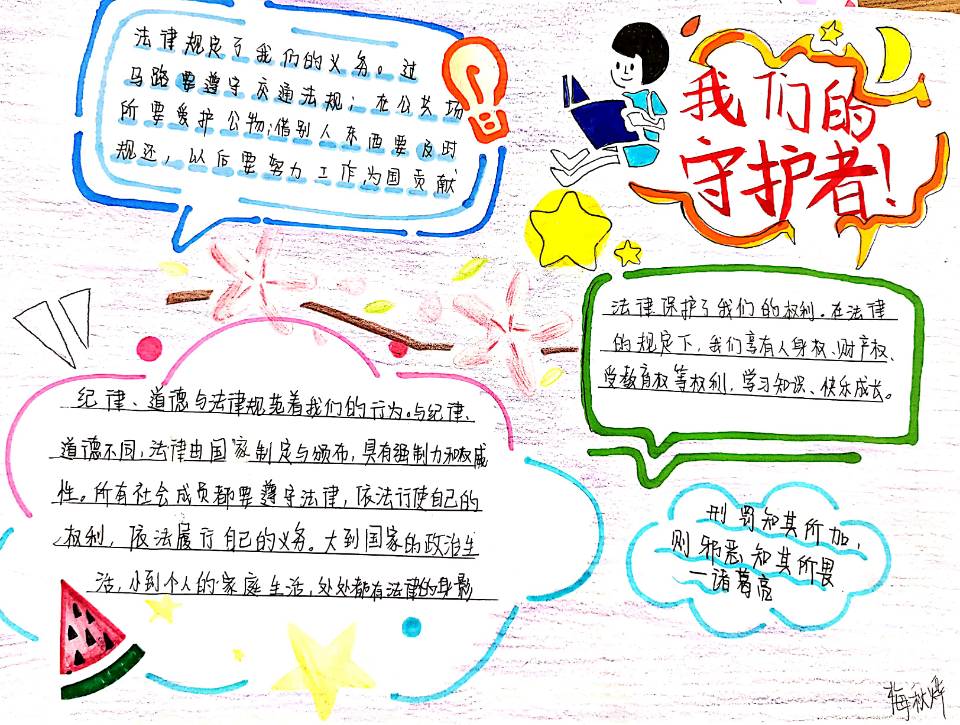 法律规定了我们的义务。过
马路要遵守交通法规；在公共场
所要爱护公物；借别人东西要及时
规还，以后要努力工作，为国贡献
我们的
守护者！
法律保护了我们的权利。在法律
的规定下，我们享有人身权、财产权、
受教育权等权利，学习知识、快乐成长。
纪律、道德与法律规范着我们的行为。与纪律、
道德不同，法律由国家制定与颁布，具有强制力和权威
性。所有社会成员都要遵守法律，依法行使自己的
权利，依法履行自己的义务。大到国家的政治生
活，小到个人的家庭生活，处处都有法律的身影
刑罚知其所加，
则邪恶知其所畏
—诸葛亮
梅秋烨